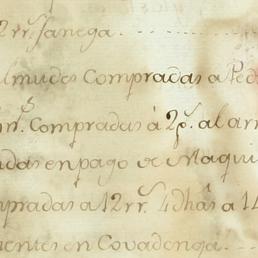 2 rr.s fanega.
lmudes Compradas a Ped
Compradas á 2p.s al arr
das en pago de Maqui
mpradas a 12 rr.s 4 dhâs a 14
uentes en Covadenga.